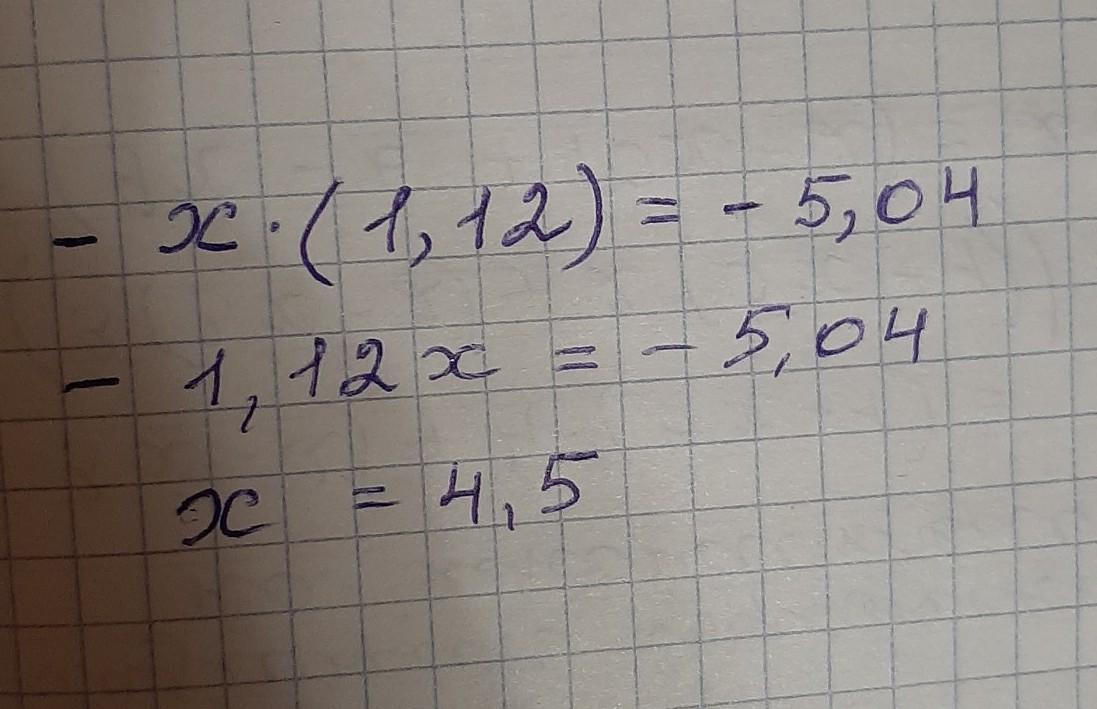 - x · (1,12) = - 5,04
- 1,12x = - 5,04
x = 4,5